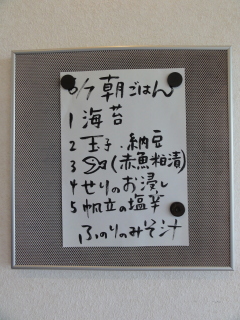 6/7 朝ごはん
1 海苔
2 玉子、納豆
3 (赤魚粕漬)
4 せりのお浸し
5 帆立の塩辛
ふのりのみそ汁